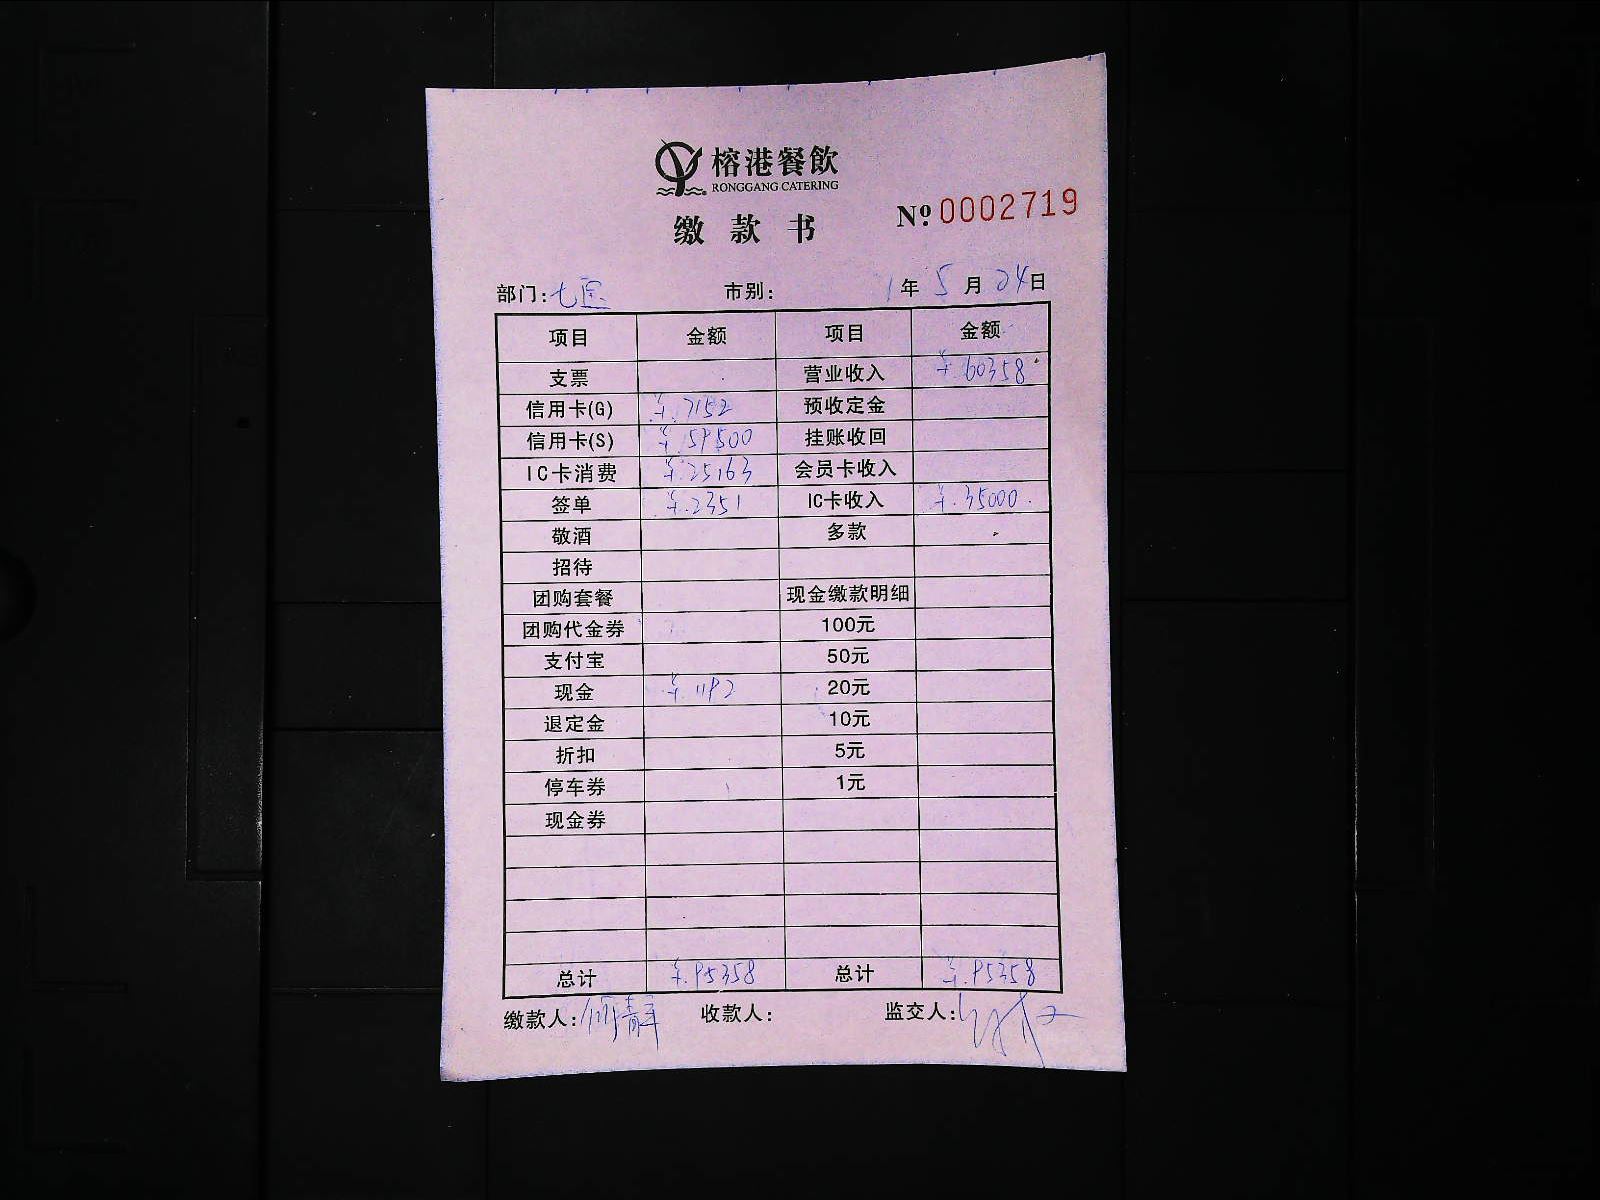 榕港餐飲
RONGGANG CATERING
缴款书
№ 0002719
部门:七 市别: 1年5月24日
项目 金额 项目 金额
支票 营业收入 ¥.60358
信用卡(G) ¥.7152 预收定金
信用卡(S) ¥.59500 挂账收回
IC卡消费 ¥.25163 会员卡收入
签单 ¥.2351 IC卡收入 ¥.35000.
敬酒 多款
招待
团购套餐 现金缴款明细
团购代金券 100元
支付宝 50元
现金 ¥.1192 20元
退定金 10元
折扣 5元
停车券 1元
现金券
总计 ¥.95358 总计 ¥.95358
缴款人:何静 收款人: 监交人: